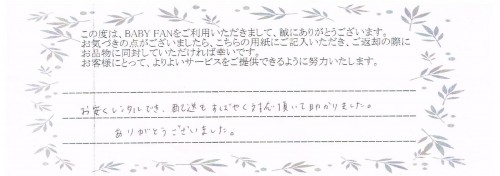 この度は、BABY FANをご利用いただきまして、誠にありがとうございます。
お気づきの点がございましたら、こちらの用紙にご記入いただき、ご返却の際に
お品物に同封していただければ幸いです。
お客様にとって、よりよいサービスをご提供できるように努力いたします。
お安くレンタルでき、配送もすばやく対応頂いて助かりました。
ありがとうございました。